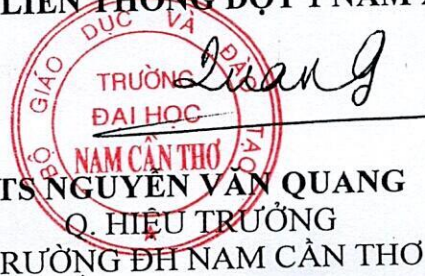 LIÊN THÔNG ĐỢT 1 NĂM
BỘ GIÁO DỤC VÀ ĐÀO TẠO
TRƯỜNG
ĐẠI HỌC
NAM CẦN THƠ
Quang
TS NGUYỄN VĂN QUANG
Q. HIỆU TRƯỞNG
RƯỜNG ĐH NAM CẦN THƠ